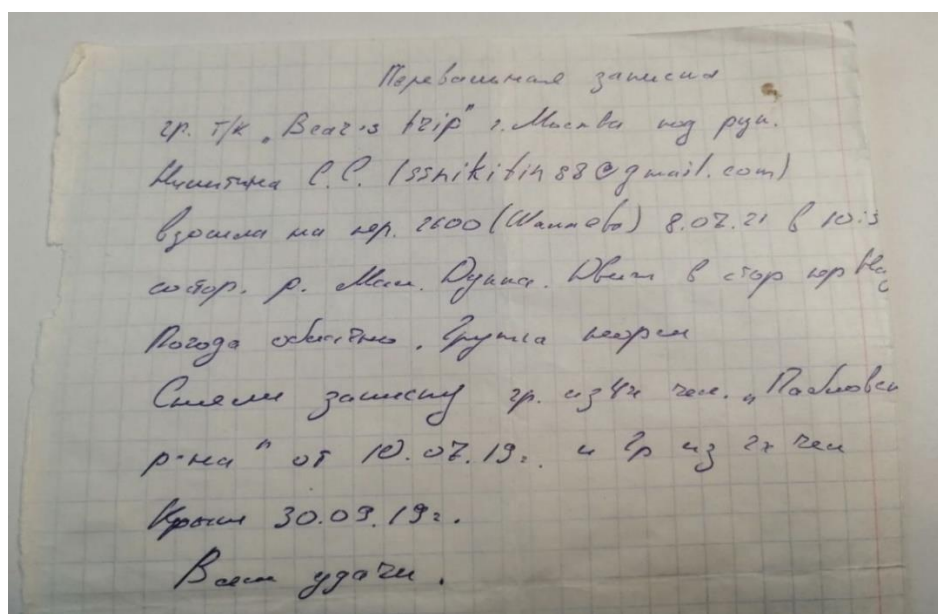 Перевальная записка
гр. т/к "Bear's trip" г. Москва под рук.
Никитина С.С. (ssnikitin88@gmail.com)
взошла на пер. 2600 (Шаннева) 8.07.21 в 10:3
со стор. р. Мал. Дукка. Движ в стор пер
Погода облачно. Группа
Сняли записку гр. из 4х чел. "Павловск
р-на" от 10.07.19г. и гр из 2х чел
Крым 30.09.19г.
Всем удачи.